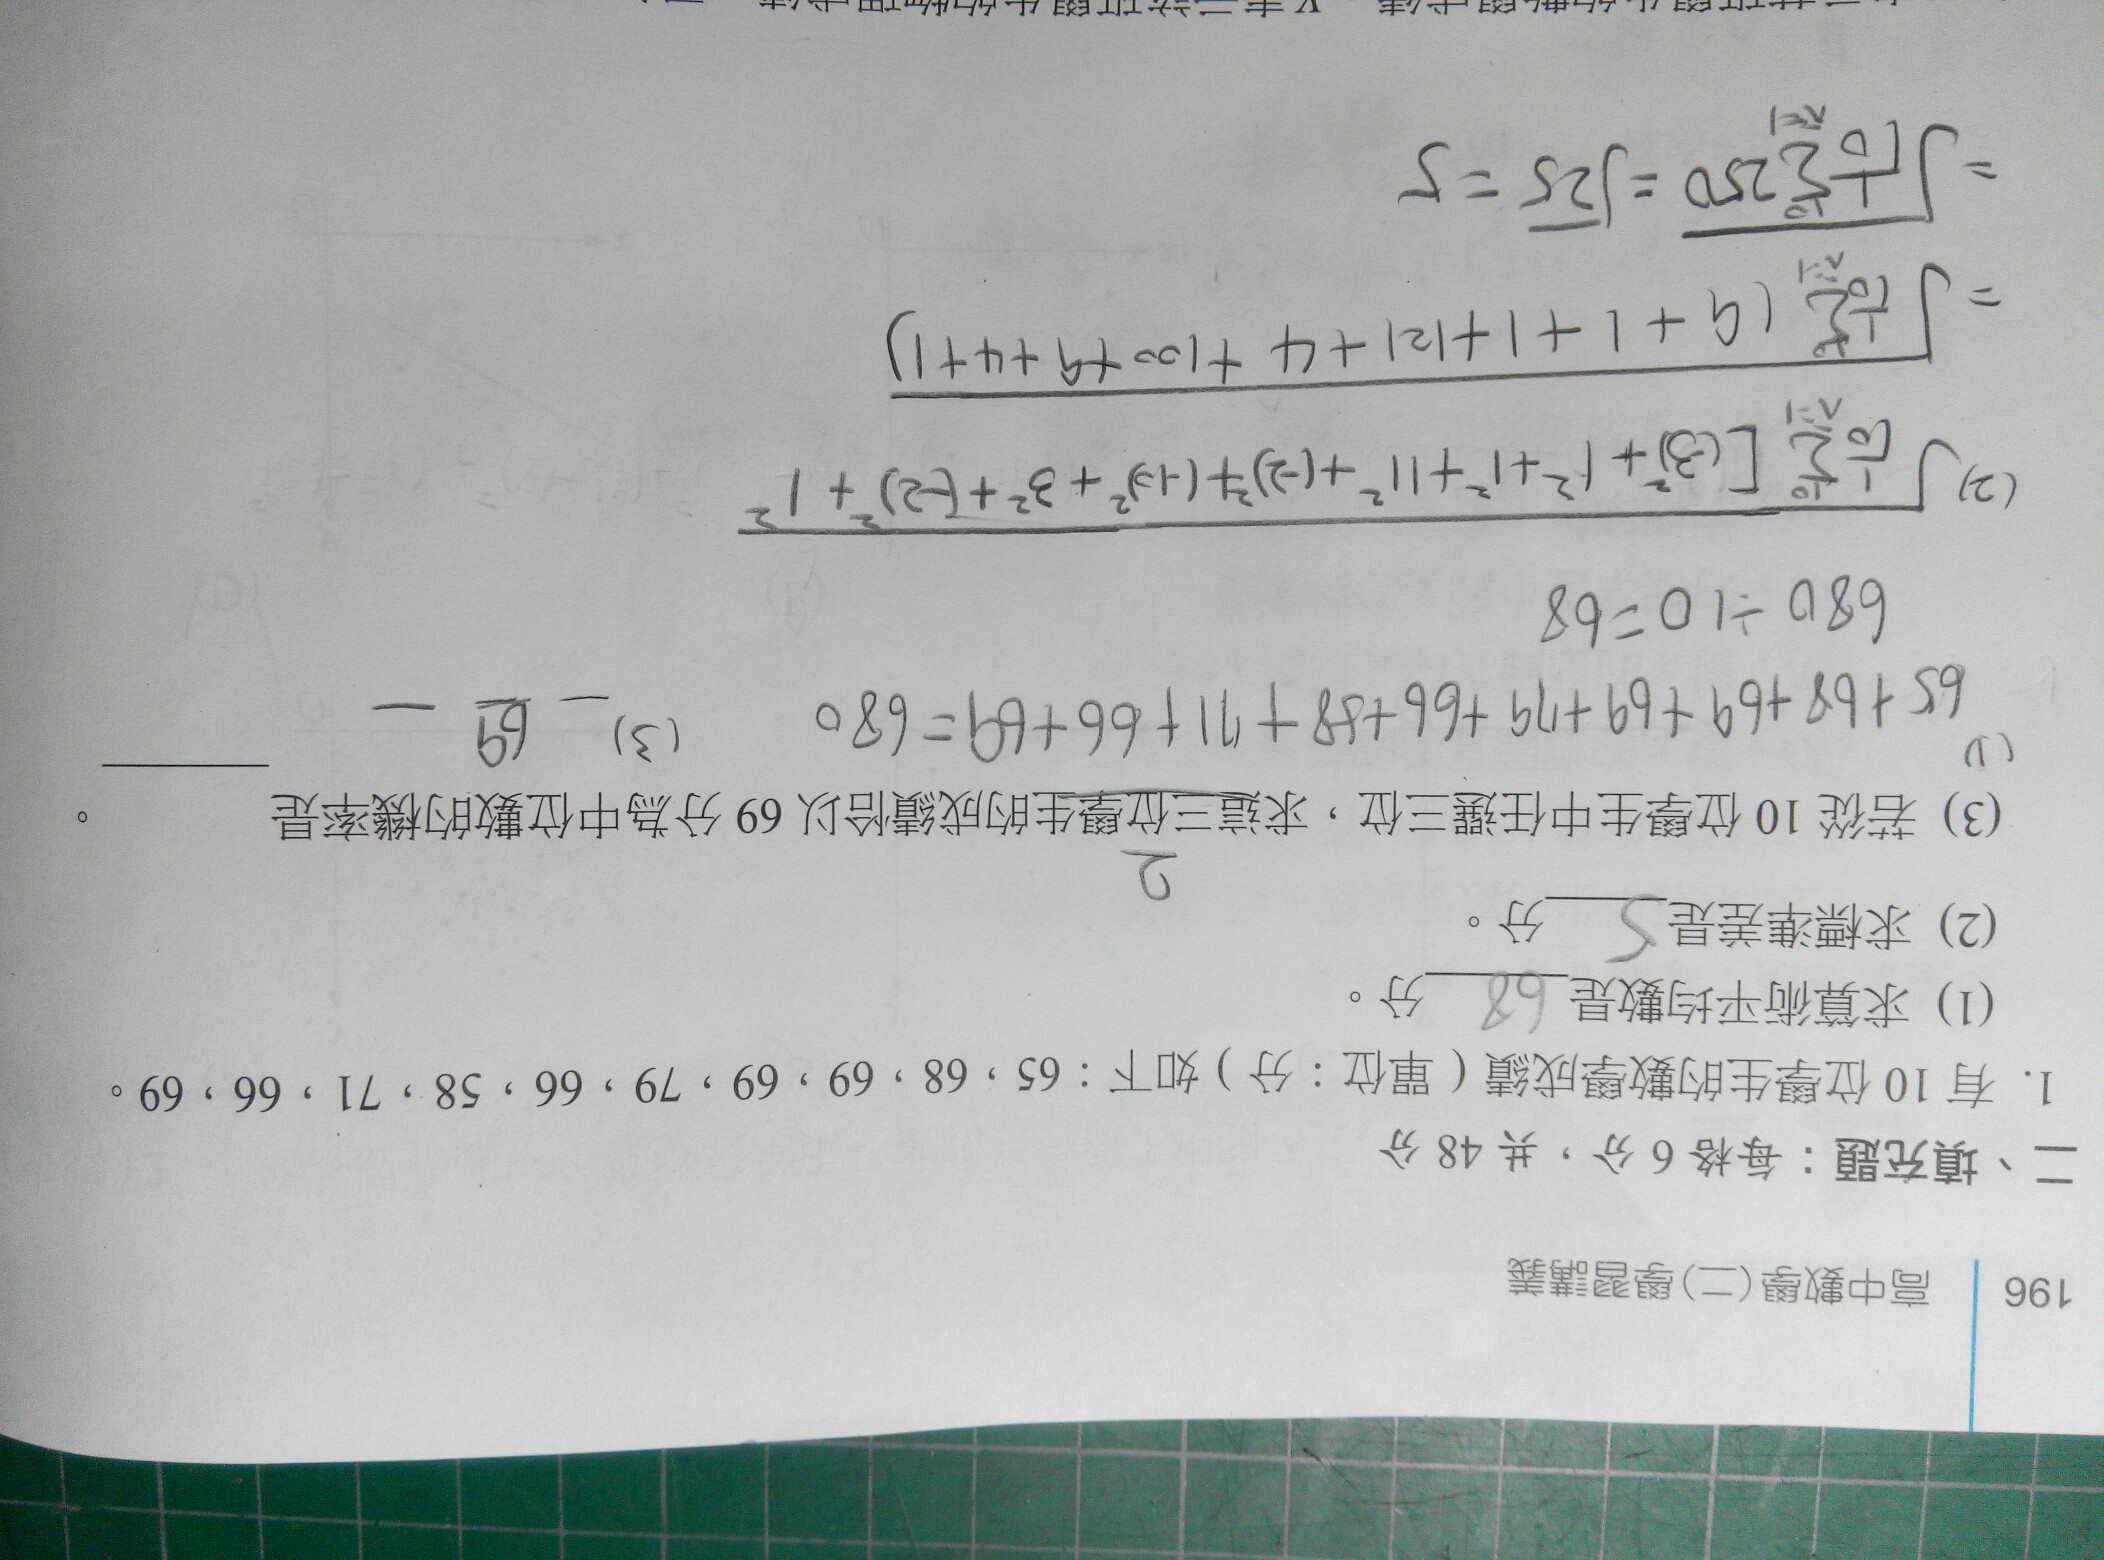 196 高中數學(二)學習講義
二、填充題：每格 6 分，共 48 分
1. 有 10 位學生的數學成績（單位：分）如下：65，68，69，69，79，66，58，71，66，69。
(1) 求算術平均數是 68 分。
(2) 求標準差是 5 分。
2
(3) 若從 10 位學生中任選三位，求這三位學生的成績恰以 69 分為中位數的機率是 。
(1) 65+68+69+69+79+66+58+71+66+69=680
(3) _ 69 _
680÷10=68
(2) √1/10 Σ [(-3)²+1²+1²+11²+(-2)²+(-10)²+3²+(-2)²+1²
=√1/10 Σ (9+1+1+121+4+100+9+4+1)
=√1/10 Σ 250 =√25 =5